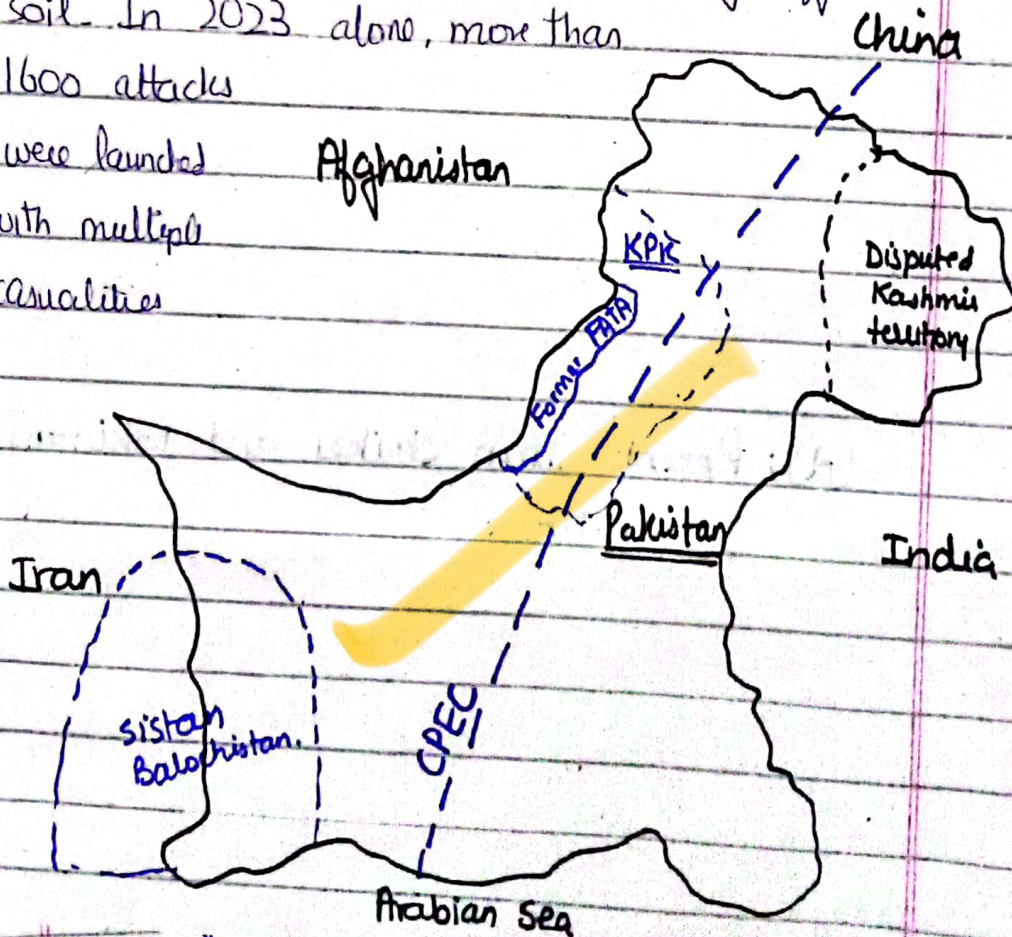 soil. In 2023 alone, more than
1600 attacks
were launced
with multiple
casualities
China
Afghanistan
KPK
Disputed
Kashmir
territory
Former FATA
Pakistan
India
Iran
Sistan
Balochistan.
CPEC
Arabian Sea